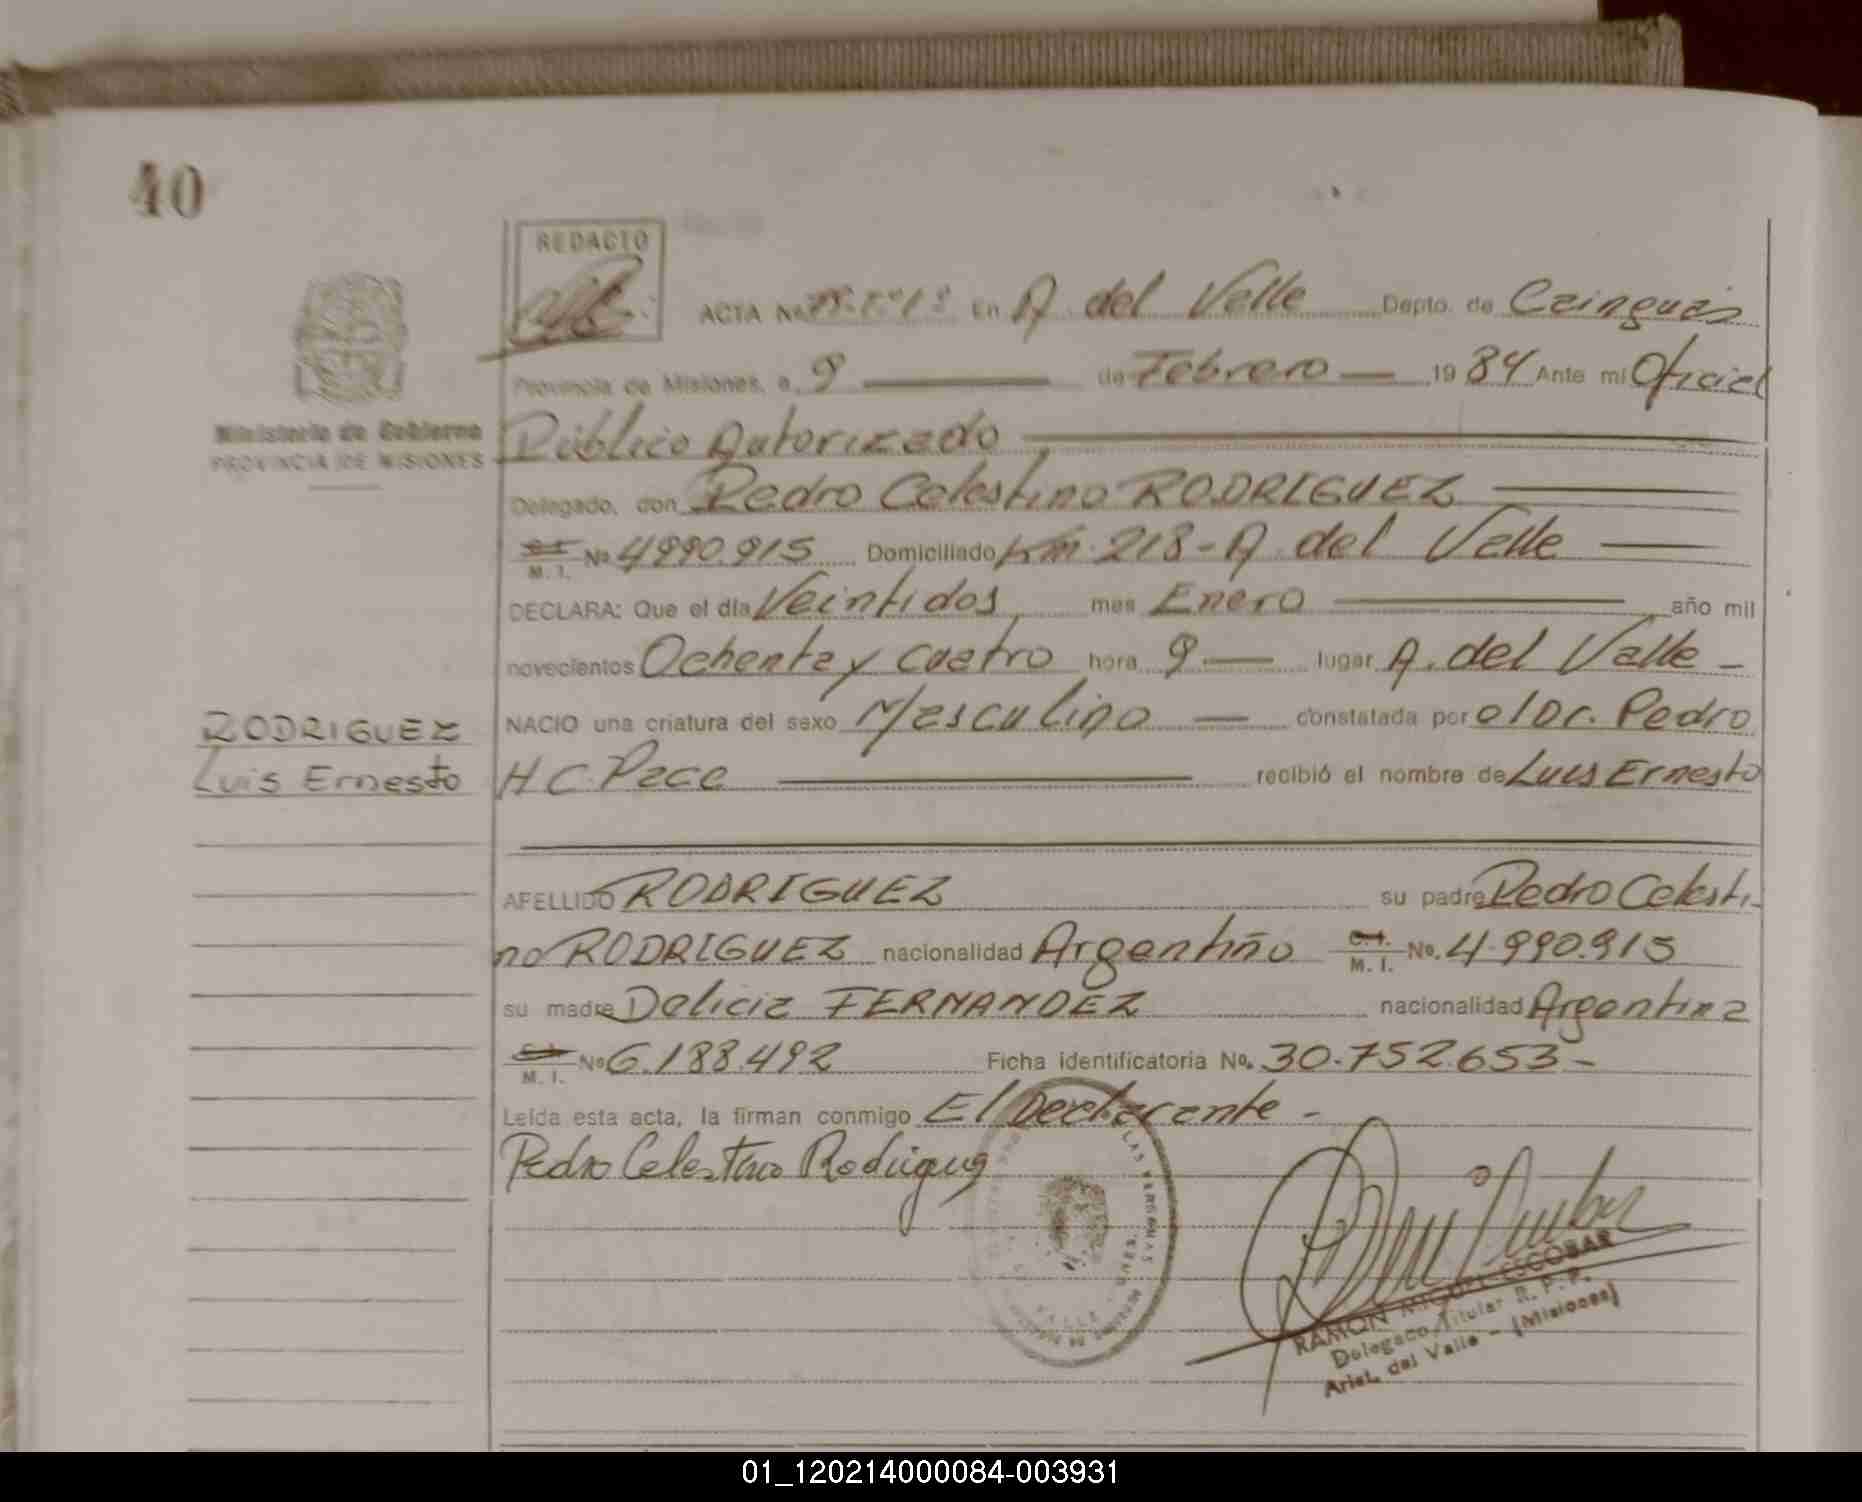 40
REDACTO
ACTA No En A. del Valle Depto. de Cainguás
Provincia de Misiones, a 9 de Febrero 1984 Ante mi Oficial
Ministerio de Gobierno
PROVINCIA DE MISIONES
Público Autorizado
Delegado, don Pedro Celestino RODRIGUEZ
M. I. No 4990.915 Domiciliado Km. 218 - A. del Valle
DECLARA: Que el día Veintidos mes Enero año mil
novecientos Ochenta y cuatro hora 9 lugar A. del Valle -
NACIO una criatura del sexo Masculino constatada por el Dr. Pedro
H C. Pace recibió el nombre de Luis Ernesto
RODRIGUEZ
Luis Ernesto
APELLIDO RODRIGUEZ su padre Pedro Celesti-
no RODRIGUEZ nacionalidad Argentino C.I. M. I. No. 4.990.915
su madre Delicia FERNANDEZ nacionalidad Argentina
M. I. No 6.188.492 Ficha identificatoria No. 30.752.653 -
Leída esta acta, la firman conmigo El Declarante -
Pedro Celestino Rodriguez
RAMON MIGUEL ESCOBAR
Delegado Titular R. P. P.
Arist. del Valle - (Misiones)
01_120214000084-003931